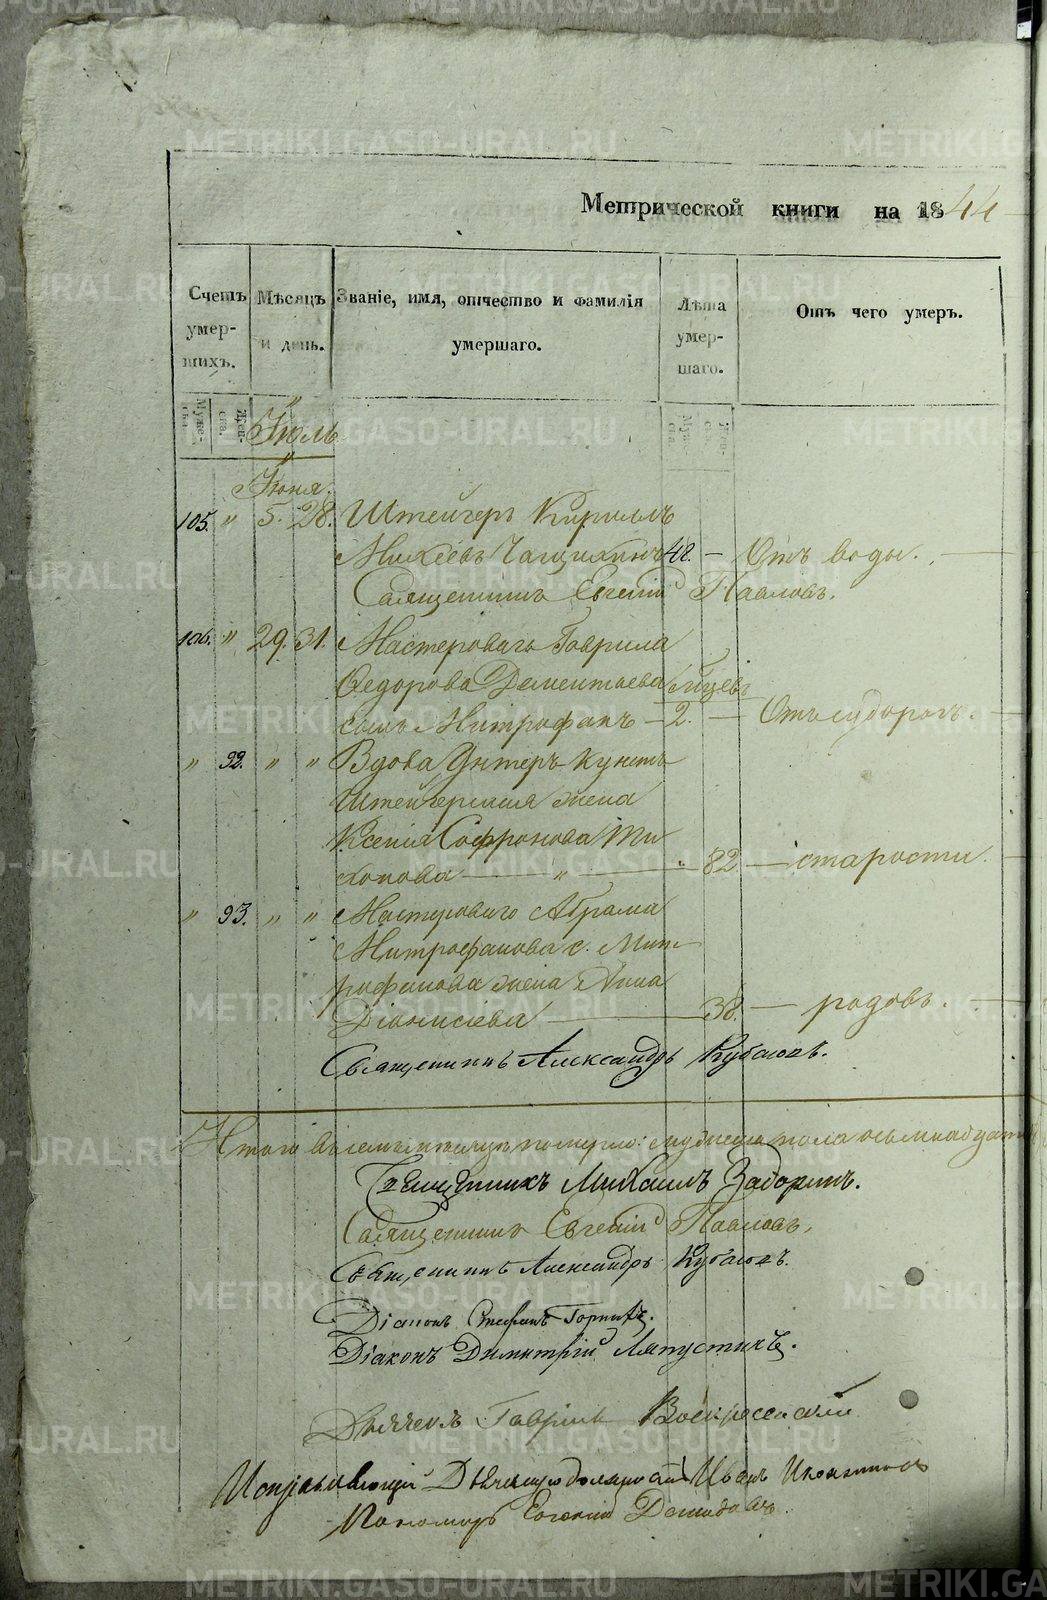 Метрической книги на 1844
Счетъ умершихъ.
Мѣсяцъ и день.
Званіе, имя, отчество и фамилія умершаго.
Лѣта умершаго.
Отъ чего умеръ.
Мужеска.
Женска.
Мужеска.
Женска.
Іюль
Іюня
105. " 5. 28. Штейгеръ Кириллъ
Михѣевъ 48. — Отъ воды.
Священникъ Евгеній Павловъ.
106. " 29. 31. Мастероваго Гаврила
Федорова Дементьева
сынъ Митрофанъ — 2. — Отъ судорогъ.
" 92. " " Вдова Унтеръ
Штейгерская жена
Ксенія Софронова Ти
хонова — " — 82 — старости.
" 93. " " Мастероваго Абрама
Митрофанова с. Мит
рофанова жена Анна
Діонисіева — 38. — родовъ.
Священникъ Александръ
Итого въ семъ мѣсяцѣ померло: мужеска пола
Священникъ Михаилъ Задоринъ.
Священникъ Евгеній Павловъ.
Священникъ Александръ
Діаконъ Стефанъ
Діаконъ Димитрій Ляпустинъ.
Дьячекъ Гавріилъ Воскресенскій
Исправляющій Дьяческую должность Иванъ
Пономарь Евгеній Демидовъ.
METRIKI.GASO-URAL.RU